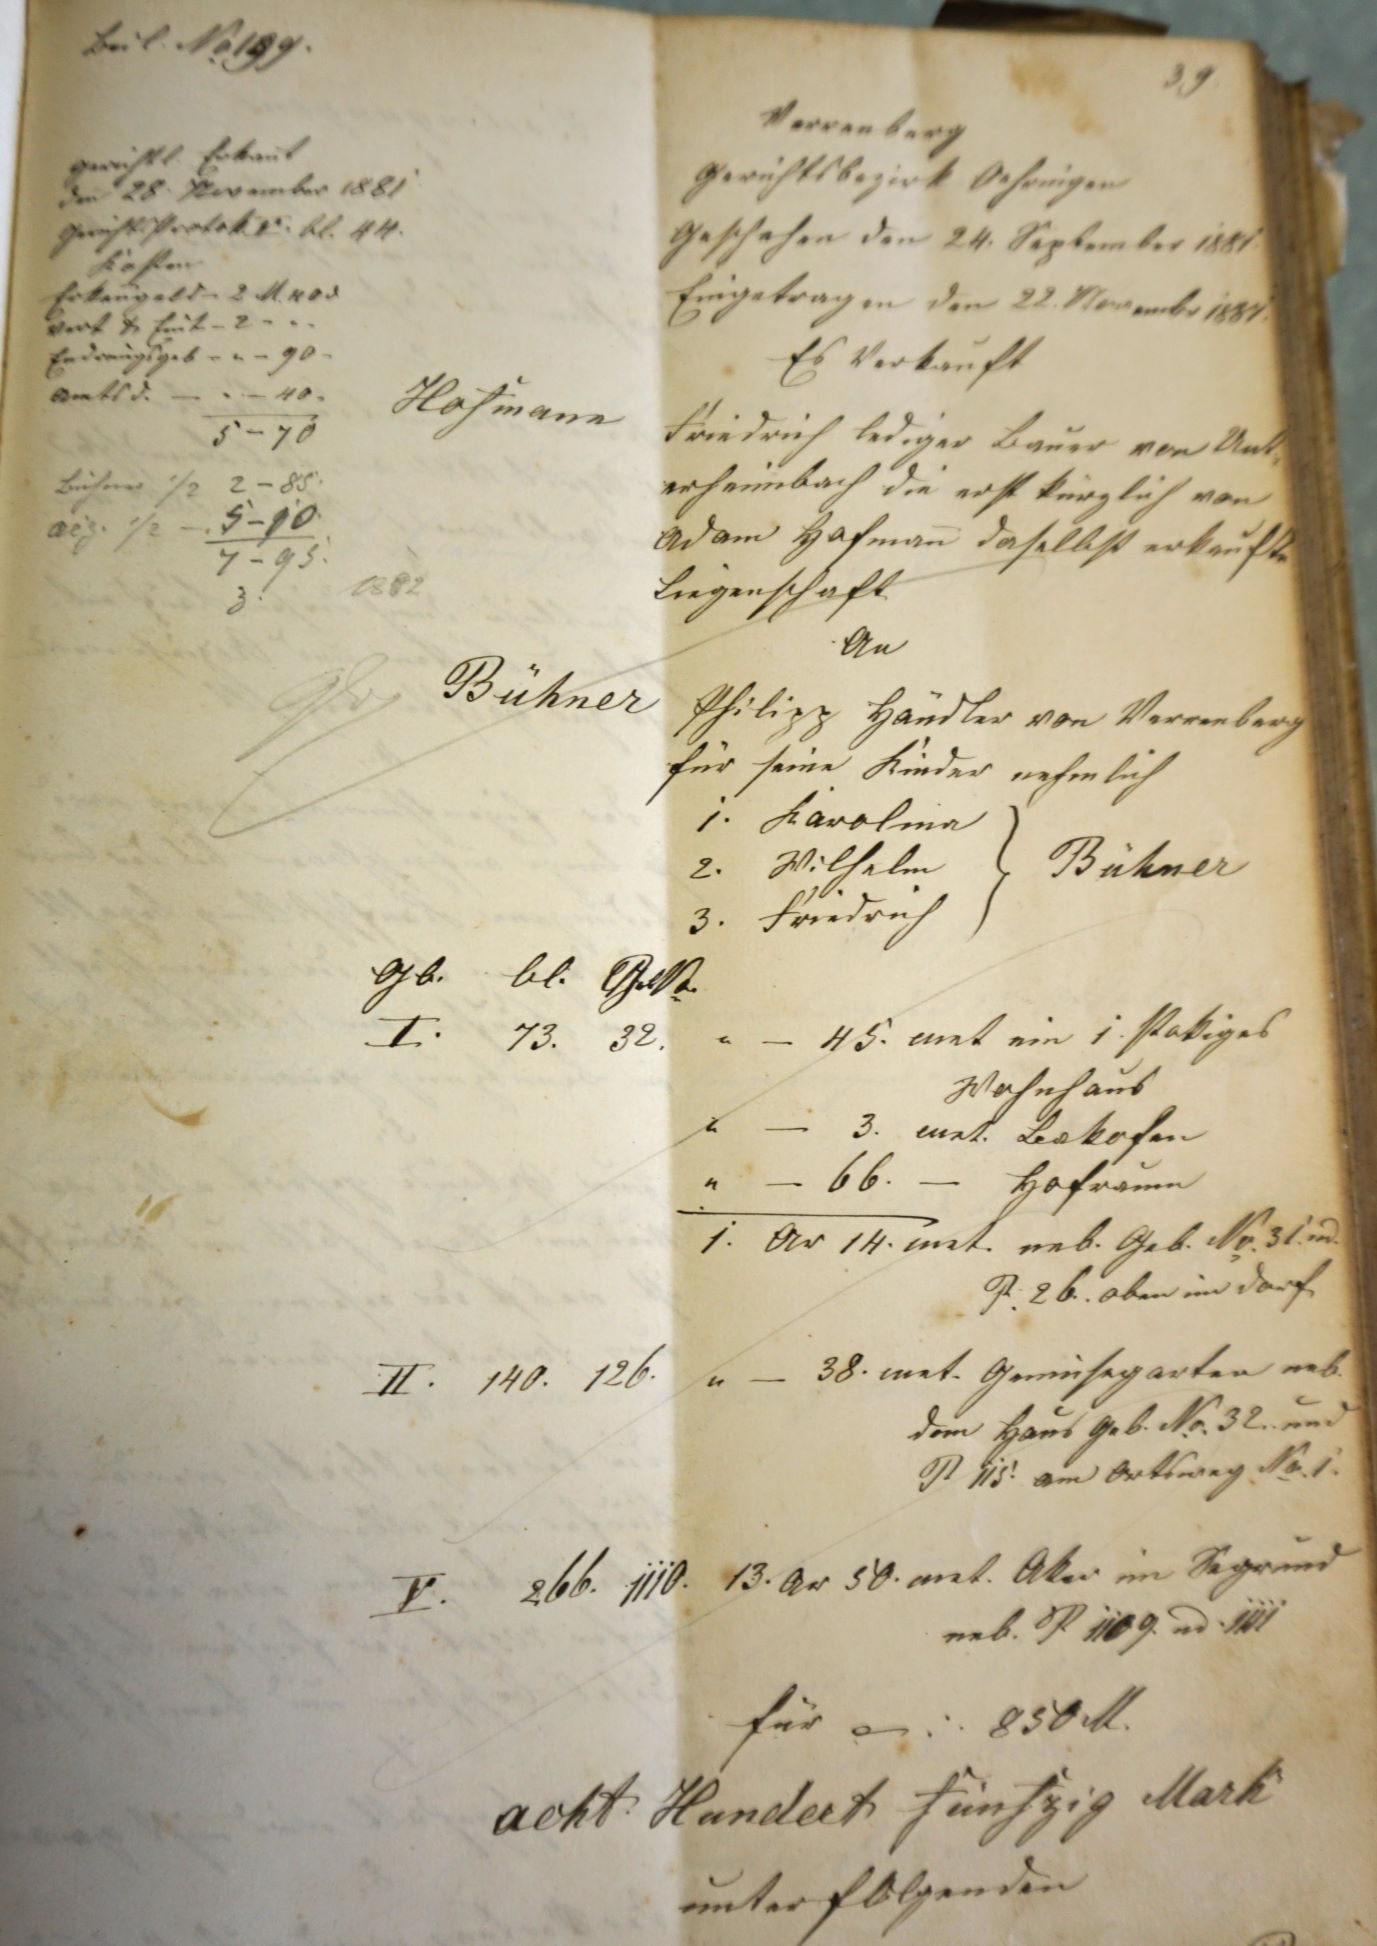 Beil. No 199.
39.
gerichtl. Erkannt
den 28. November 1881
Gericht. Protok. V. bl. 44.
Kosten
Erkenngeld – 2 M. 40 d
Vert & Eint – 2 – "
– " – 90 –
Amtsd. – " – 40 –
5 – 70
Bühner 1/2 2 – 85.
1/2 – 5 – 10
7 – 95.
3.
1882
Verrenberg
Gerichtsbezirk Oehringen
Geschehen den 24. September 1881.
Eingetragen den 22. November 1881.
Es Verkauft
Hofmann
Friedrich lediger Bauer von Unt-
erheimbach die erst kürzlich von
Adam Hofmañ daselbst erkaufte
Liegenschaft
An
Bühner
Philipp Händler von Verrenberg
für seine Kinder nehmlich
1. Karolina
2. Wilhelm
3. Friedrich
Bühner
Gb. bl.
I. 73. 32. " – 45. met ein 1. stokiges
Wohnhaus
" – 3. met. Bakofen
" – 66. – Hofraum
1. Ar 14. met. neb. Geb. No. 31. ud.
P. 26. oben im Dorf
II. 140. 126. " – 38. met. Gemüsegarten neb.
dem Haus Geb. No. 32. und
P 115. am Ortsweg No. 1.
V. 266. 1110. 13. Ar 50. met. Aker im Segrund
neb. P 1109. ud. 1111
für – : 850 M.
acht Hundert fünfzig Mark
unter folgenden